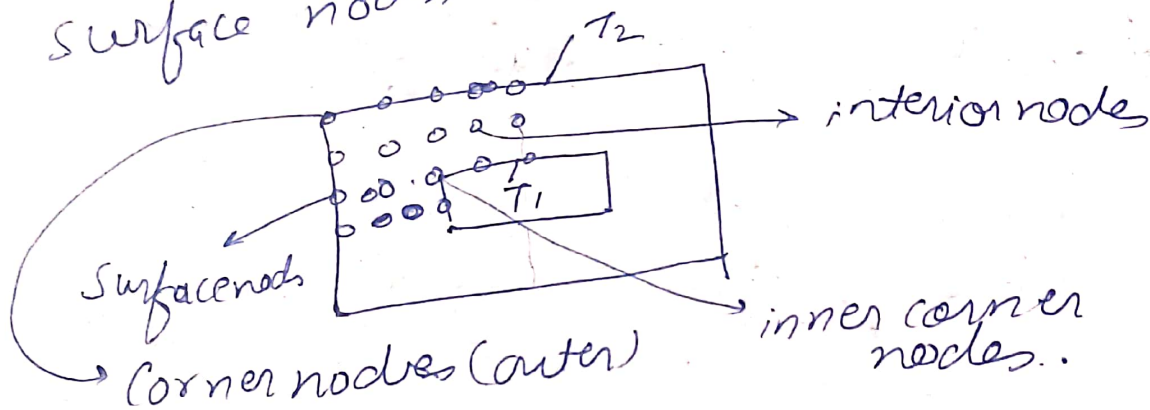 surface
T2
interior nodes
T1
Surface nods
inner corner
nodes..
Corner nodes (outer)